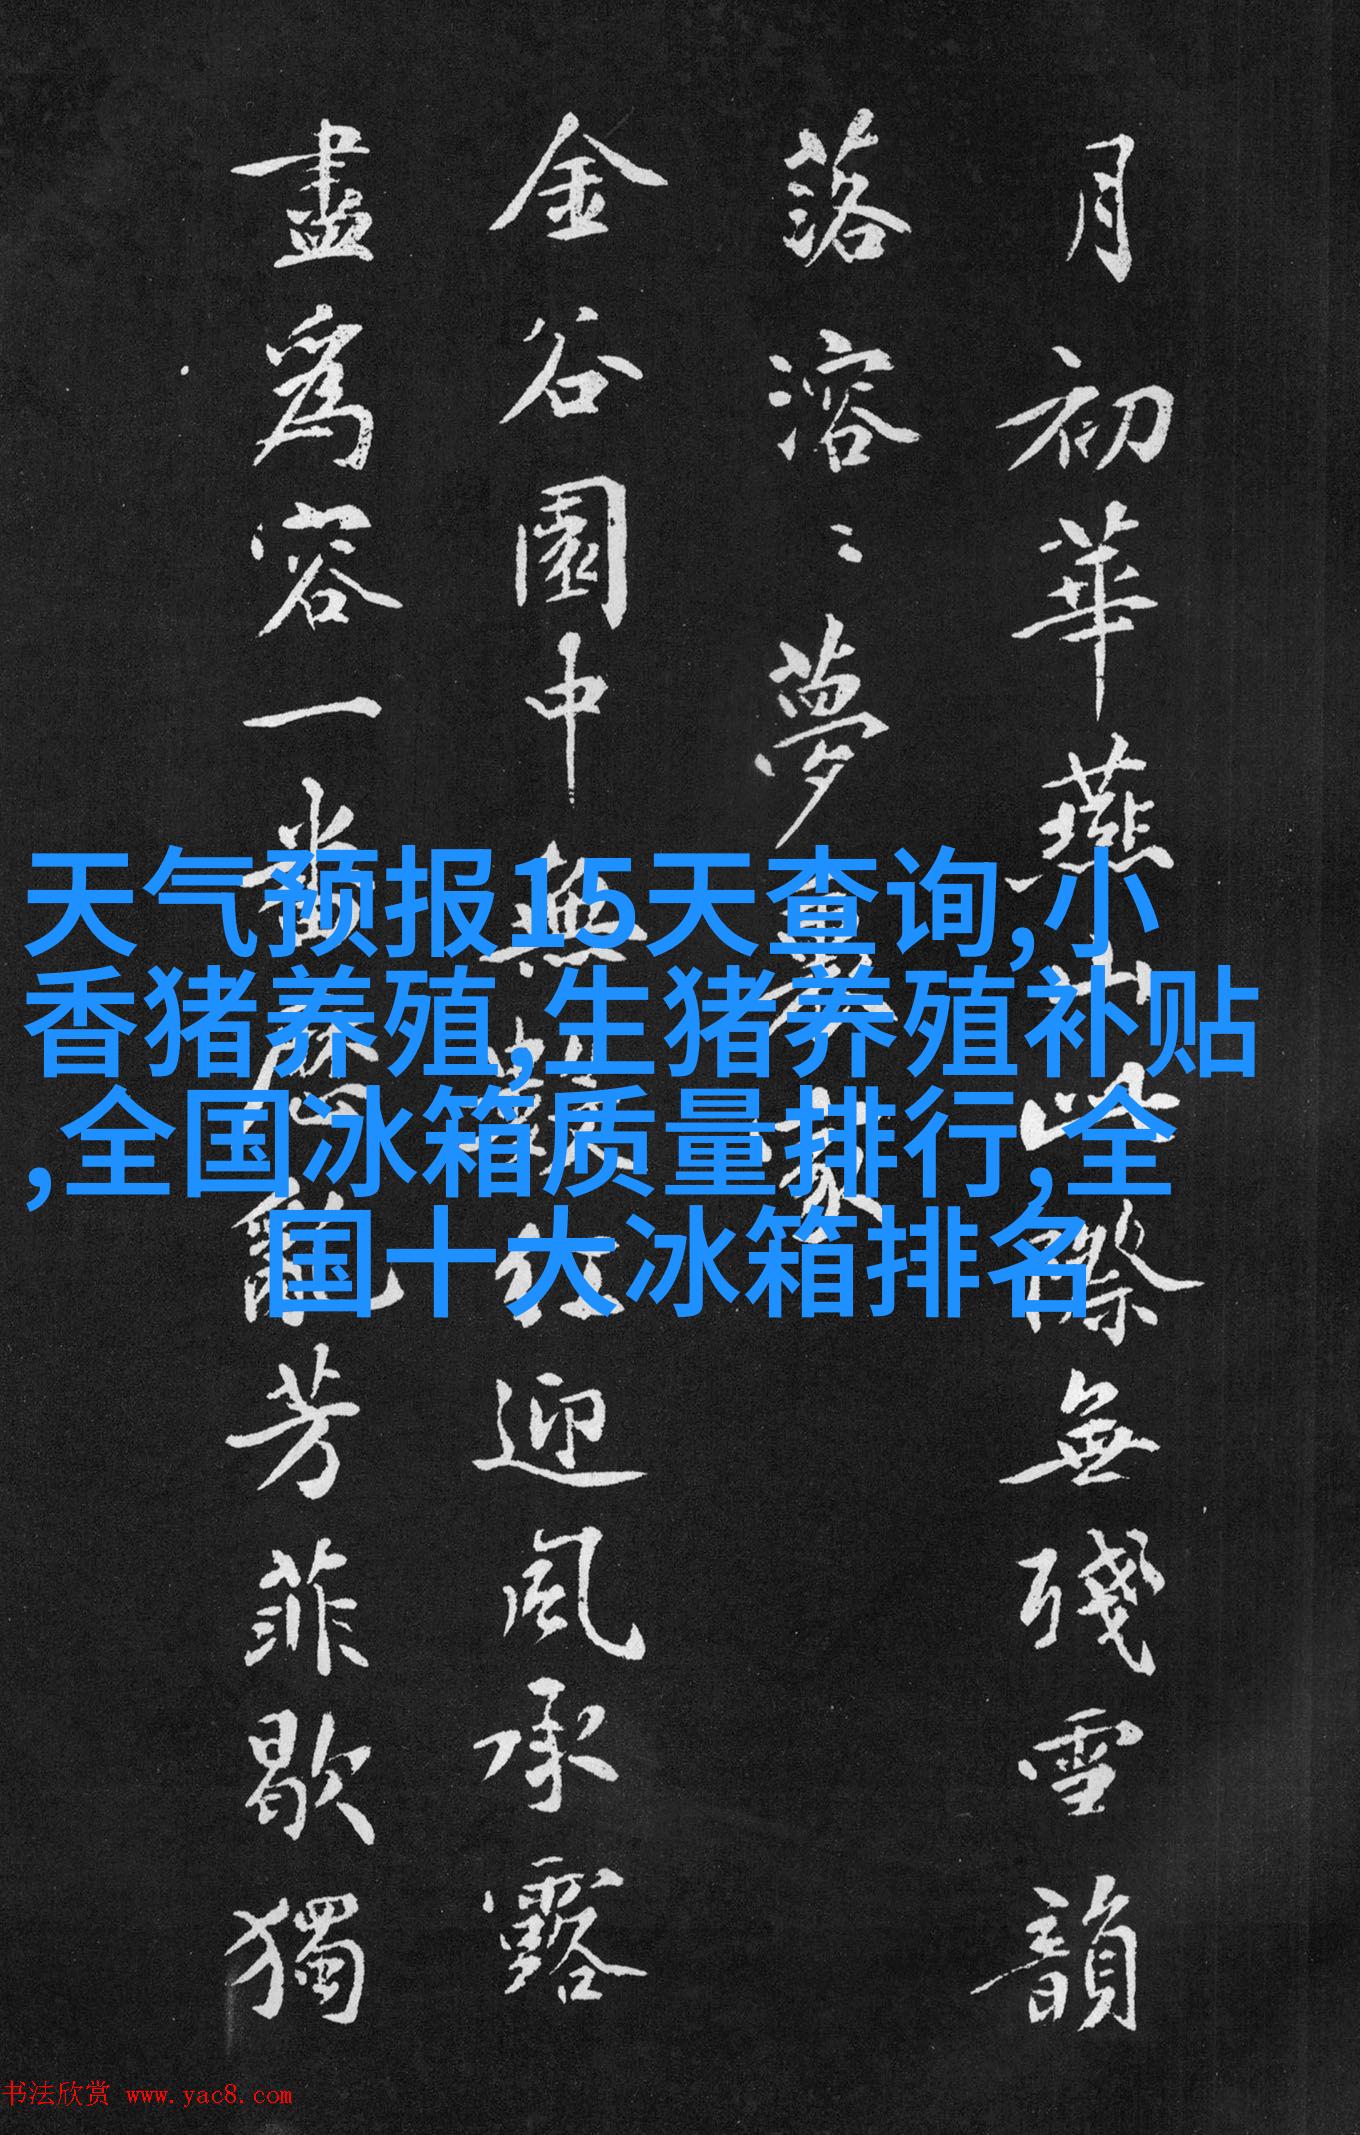 月初華燕山此際無殘雪韻
落溶〻夢裏家
金谷園中無數紅迎風承露
盡為容一番歷亂芳菲歇獨
天气预报15天查询,小
香猪养殖,生猪养殖补贴
,全国冰箱质量排行,全
国十大冰箱排名
书法欣赏 www.yac8.com